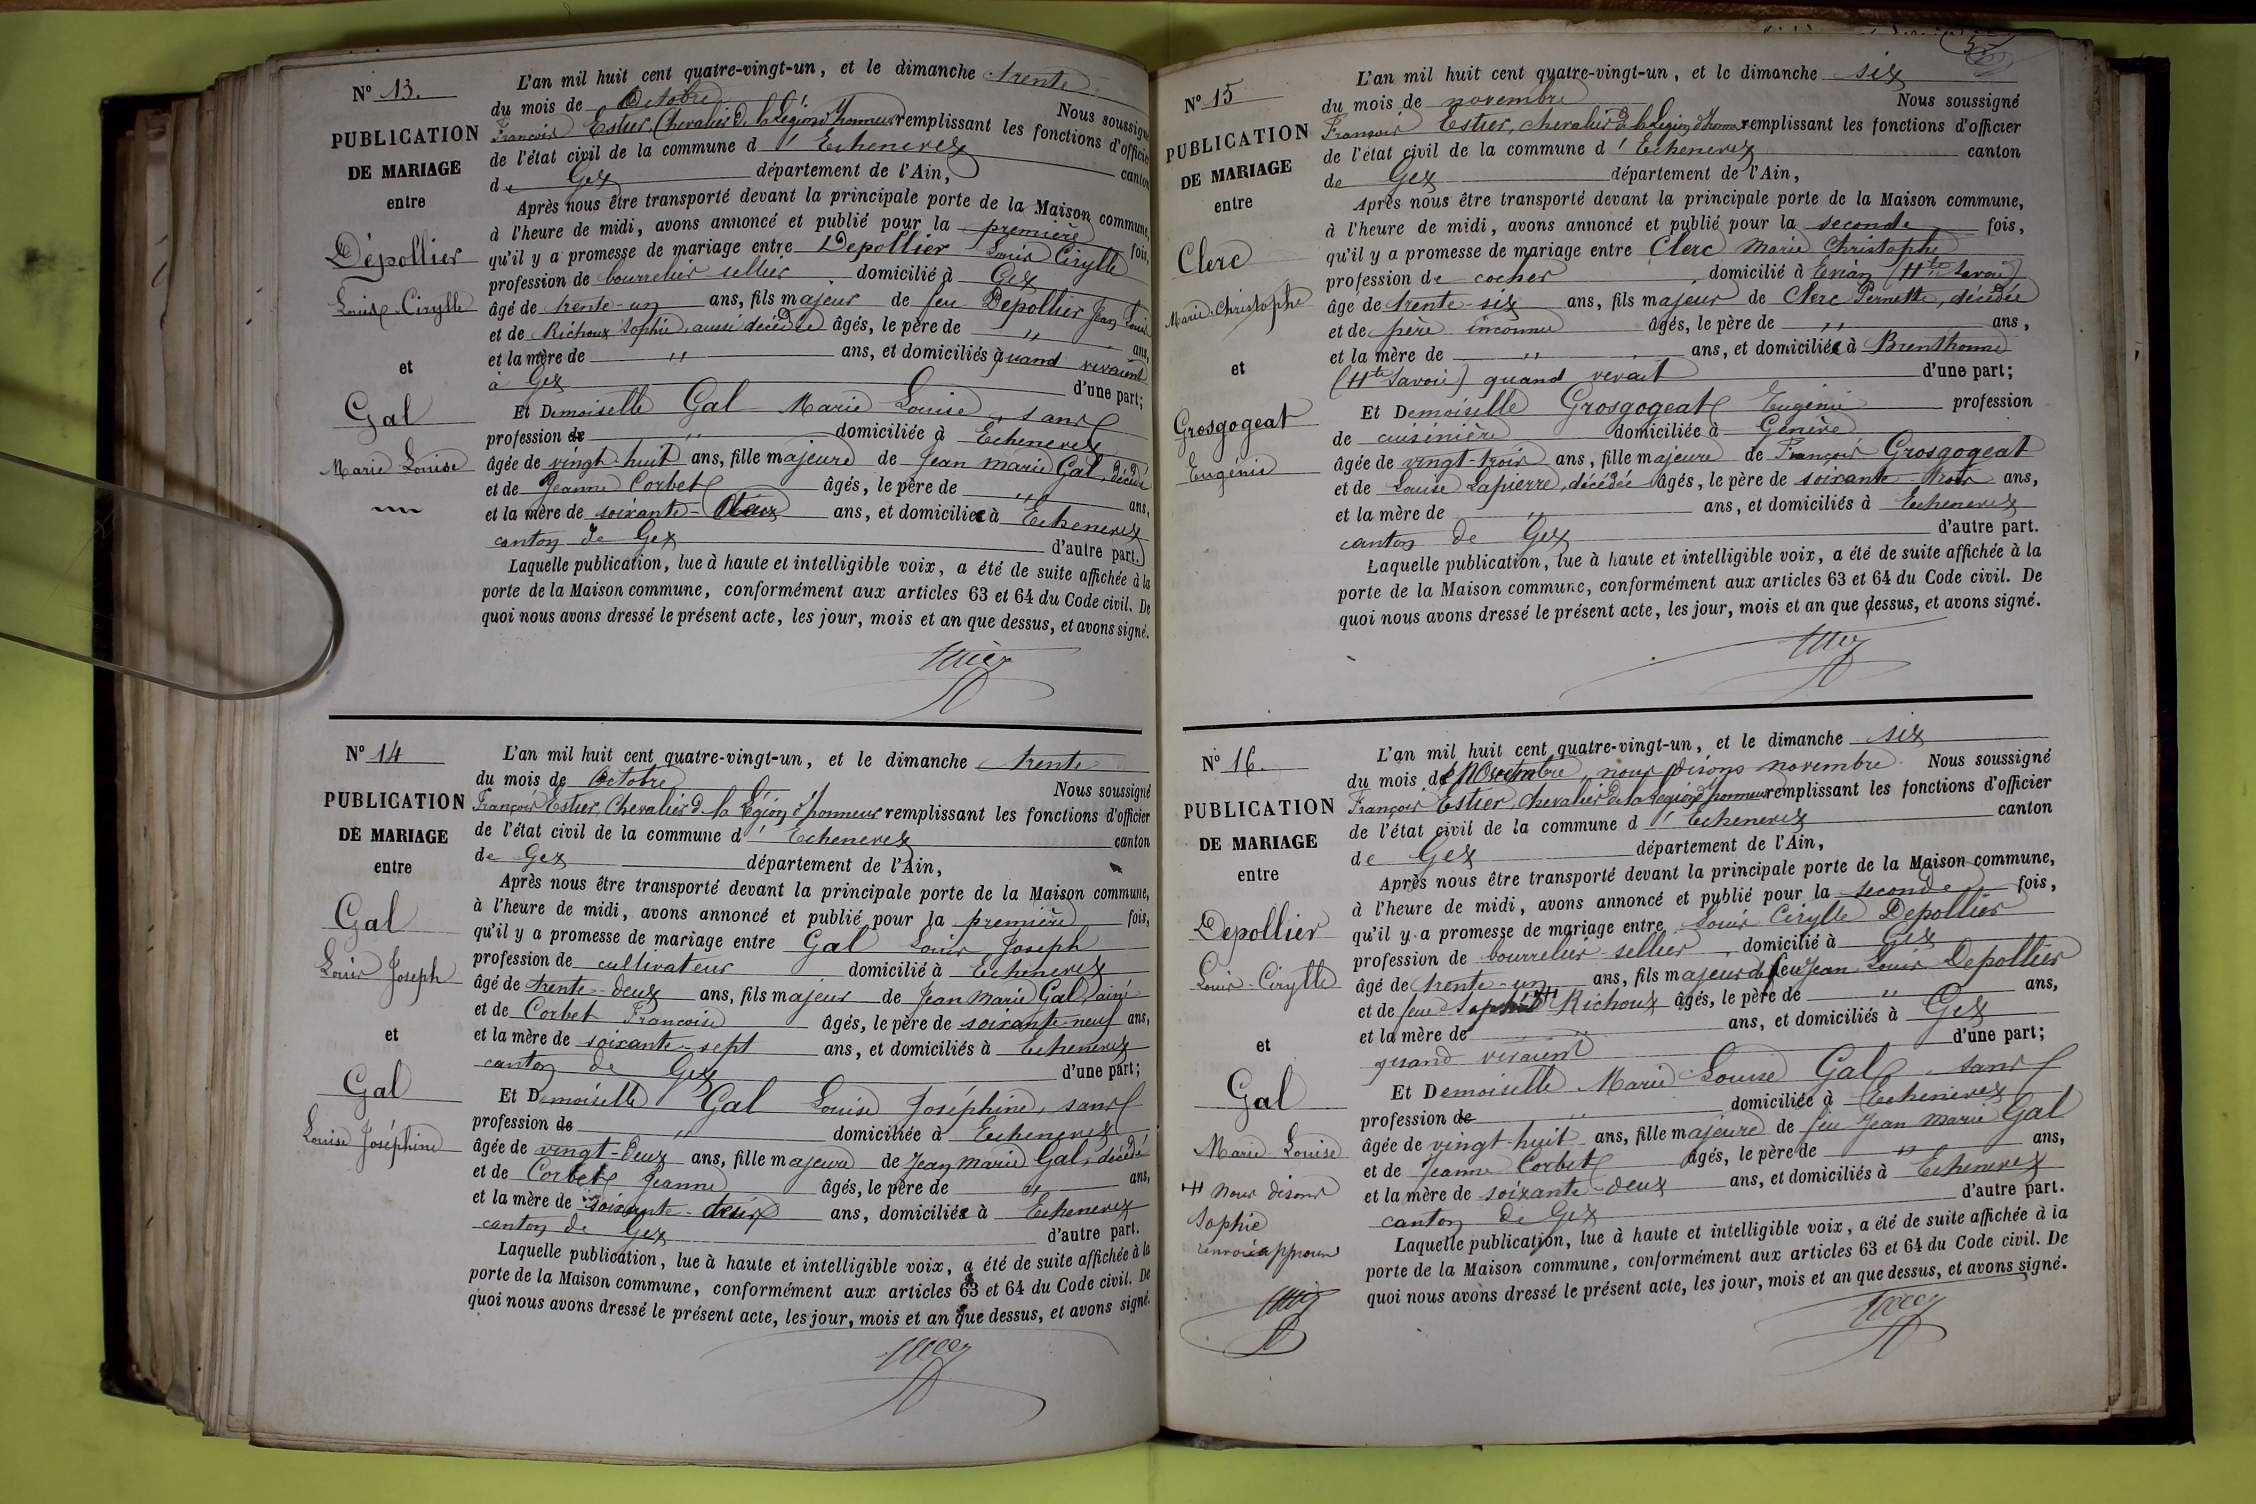 N° 13.
PUBLICATION
DE MARIAGE
entre
Dépollier
Louis Cirylle
et
Gal
Marie Louise
L'an mil huit cent quatre-vingt-un, et le dimanche trente
du mois de Octobre Nous soussigné
François Estier, Chevalier de la Légion d'honneur remplissant les fonctions d'officier
de l'état civil de la commune d'Echenevex canton
de Gex département de l'Ain,
Après nous être transporté devant la principale porte de la Maison commune,
à l'heure de midi, avons annoncé et publié pour la première fois,
qu'il y a promesse de mariage entre Depollier Louis Cirylle
profession de bourrelier sellier domicilié à Gex
âgé de trente-un ans, fils majeur de feu Depollier Jean Louis
et de Richoux Sophie, aussi décédée âgés, le père de " ans,
et la mère de " ans, et domiciliés à quand vivaient
à Gex d'une part;
Et Demoiselle Gal Marie Louise, sans
profession de " domiciliée à Echenevex
âgée de vingt-huit ans, fille majeure de Jean Marie Gal, décédé
et de Jeanne Corbet âgés, le père de " ans,
et la mère de soixante-deux ans, et domiciliée à Echenevex
canton de Gex d'autre part.
Laquelle publication, lue à haute et intelligible voix, a été de suite affichée à la
porte de la Maison commune, conformément aux articles 63 et 64 du Code civil. De
quoi nous avons dressé le présent acte, les jour, mois et an que dessus, et avons signé.
N° 14
PUBLICATION
DE MARIAGE
entre
Gal
Louis Joseph
et
Gal
Louise Joséphine
L'an mil huit cent quatre-vingt-un, et le dimanche trente
du mois de Octobre Nous soussigné
François Estier, Chevalier de la Légion d'honneur remplissant les fonctions d'officier
de l'état civil de la commune d'Echenevex canton
de Gex département de l'Ain,
Après nous être transporté devant la principale porte de la Maison commune,
à l'heure de midi, avons annoncé et publié pour la première fois,
qu'il y a promesse de mariage entre Gal Louis Joseph
profession de cultivateur domicilié à Echenevex
âgé de trente-deux ans, fils majeur de Jean Marie Gal aîné
et de Corbet Françoise âgés, le père de soixante-neuf ans,
et la mère de soixante-sept ans, et domiciliés à Echenevex
canton de Gex d'une part;
Et Demoiselle Gal Louise Joséphine, sans
profession de " domiciliée à Echenevex
âgée de vingt-deux ans, fille majeure de Jean Marie Gal, décédé
et de Corbet Jeanne âgés, le père de " ans,
et la mère de soixante-deux ans, domiciliée à Echenevex
canton de Gex d'autre part.
Laquelle publication, lue à haute et intelligible voix, a été de suite affichée à la
porte de la Maison commune, conformément aux articles 63 et 64 du Code civil. De
quoi nous avons dressé le présent acte, les jour, mois et an que dessus, et avons signé.
N° 15
PUBLICATION
DE MARIAGE
entre
Clerc
Marie-Christophe
et
Grosgogeat
Eugénie
L'an mil huit cent quatre-vingt-un, et le dimanche six
du mois de novembre Nous soussigné
François Estier, chevalier de la Légion d'honneur remplissant les fonctions d'officier
de l'état civil de la commune d'Echenevex canton
de Gex département de l'Ain,
Après nous être transporté devant la principale porte de la Maison commune,
à l'heure de midi, avons annoncé et publié pour la seconde fois,
qu'il y a promesse de mariage entre Clerc Marie Christophe
profession de cocher domicilié à Evian (Hte Savoie)
âgé de trente-six ans, fils majeur de Clerc Pernette, décédée
et de père inconnu âgés, le père de " ans,
et la mère de " ans, et domiciliée à Brenthonne
(Hte Savoie) quand vivait d'une part;
Et Demoiselle Grosgogeat Eugénie profession
de cuisinière domiciliée à Genève
âgée de vingt-trois ans, fille majeure de François Grosgogeat
et de Louise Lapierre, décédée âgés, le père de soixante-trois ans,
et la mère de " ans, et domiciliés à Echenevex
canton de Gex d'autre part.
Laquelle publication, lue à haute et intelligible voix, a été de suite affichée à la
porte de la Maison commune, conformément aux articles 63 et 64 du Code civil. De
quoi nous avons dressé le présent acte, les jour, mois et an que dessus, et avons signé.
N° 16.
PUBLICATION
DE MARIAGE
entre
Depollier
Louis-Cirylle
et
Gal
Marie Louise
nous disons
Sophie
renvoi approuvé
L'an mil huit cent quatre-vingt-un, et le dimanche six
du mois de novembre, nous disons novembre Nous soussigné
François Estier, chevalier de la Légion d'honneur remplissant les fonctions d'officier
de l'état civil de la commune d'Echenevex canton
de Gex département de l'Ain,
Après nous être transporté devant la principale porte de la Maison commune,
à l'heure de midi, avons annoncé et publié pour la seconde fois,
qu'il y a promesse de mariage entre Louis Cirylle Depollier
profession de bourrelier-sellier domicilié à Gex
âgé de trente-un ans, fils majeur de feu Jean Louis Depollier
et de feue Sophie Richoux âgés, le père de " ans,
et la mère de " ans, et domiciliés à Gex
quand vivaient d'une part;
Et Demoiselle Marie Louise Gal, sans
profession de " domiciliée à Echenevex
âgée de vingt-huit ans, fille majeure de feu Jean Marie Gal
et de Jeanne Corbet âgés, le père de " ans,
et la mère de soixante-deux ans, et domiciliés à Echenevex
canton de Gex d'autre part.
Laquelle publication, lue à haute et intelligible voix, a été de suite affichée à la
porte de la Maison commune, conformément aux articles 63 et 64 du Code civil. De
quoi nous avons dressé le présent acte, les jour, mois et an que dessus, et avons signé.